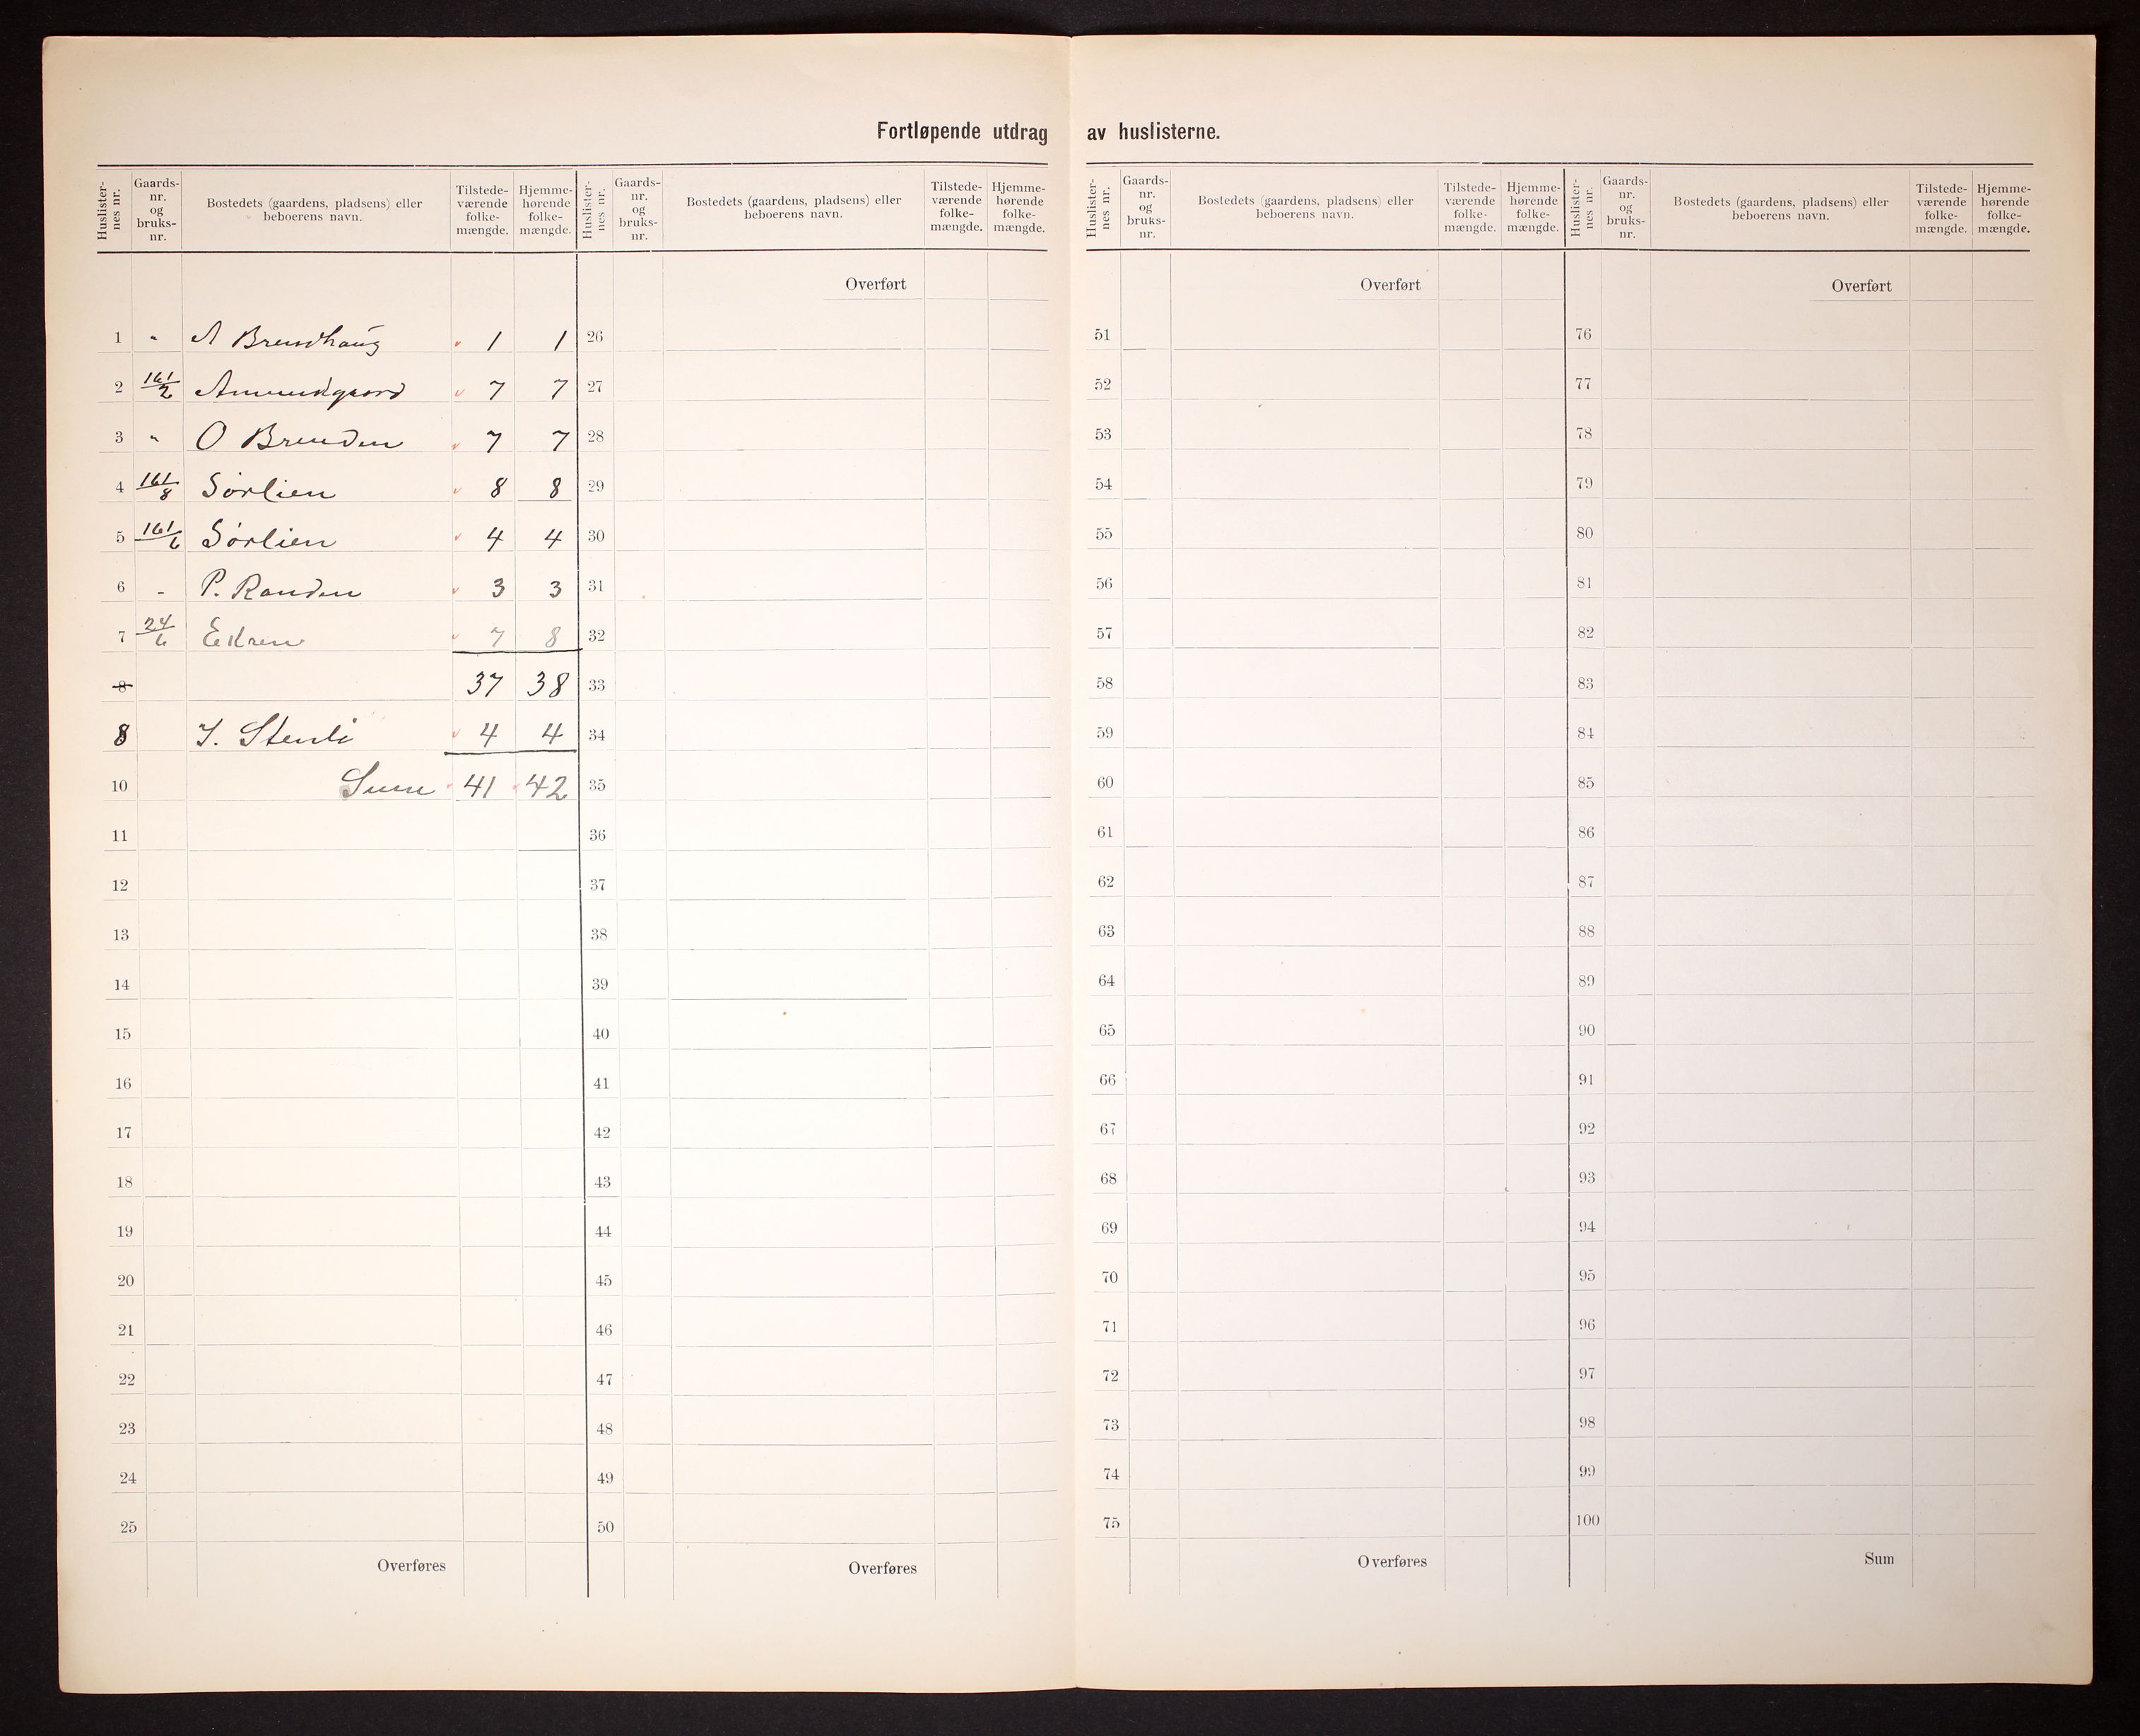 Fortløpende utdrag av huslisterne.
Huslister-nes nr. Gaards-nr. og bruks-nr. Bostedets (gaardens, pladsens) eller beboerens navn. Tilstede-værende folke-mængde. Hjemme-hørende folke-mængde.
1 " A Brendhaug 1 1
2 161/2 Amundgaard 7 7
3 " O Brenden 7 7
4 161/8 Sørlien 8 8
5 161/6 Sørlien 4 4
6 - P. Randen 3 3
7 24/6 Ekren 7 8
8 37 38
8 J. Stenli 4 4
10 Sum 41 42
11
12
13
14
15
16
17
18
19
20
21
22
23
24
25
Overføres
Huslister-nes nr. Gaards-nr. og bruks-nr. Bostedets (gaardens, pladsens) eller beboerens navn. Tilstede-værende folke-mængde. Hjemme-hørende folke-mængde.
Overført
26
27
28
29
30
31
32
33
34
35
36
37
38
39
40
41
42
43
44
45
46
47
48
49
50
Overføres
Huslister-nes nr. Gaards-nr. og bruks-nr. Bostedets (gaardens, pladsens) eller beboerens navn. Tilstede-værende folke-mængde. Hjemme-hørende folke-mængde.
Overført
51
52
53
54
55
56
57
58
59
60
61
62
63
64
65
66
67
68
69
70
71
72
73
74
75
Overføres
Huslister-nes nr. Gaards-nr. og bruks-nr. Bostedets (gaardens, pladsens) eller beboerens navn. Tilstede-værende folke-mængde. Hjemme-hørende folke-mængde.
Overført
76
77
78
79
80
81
82
83
84
85
86
87
88
89
90
91
92
93
94
95
96
97
98
99
100
Sum